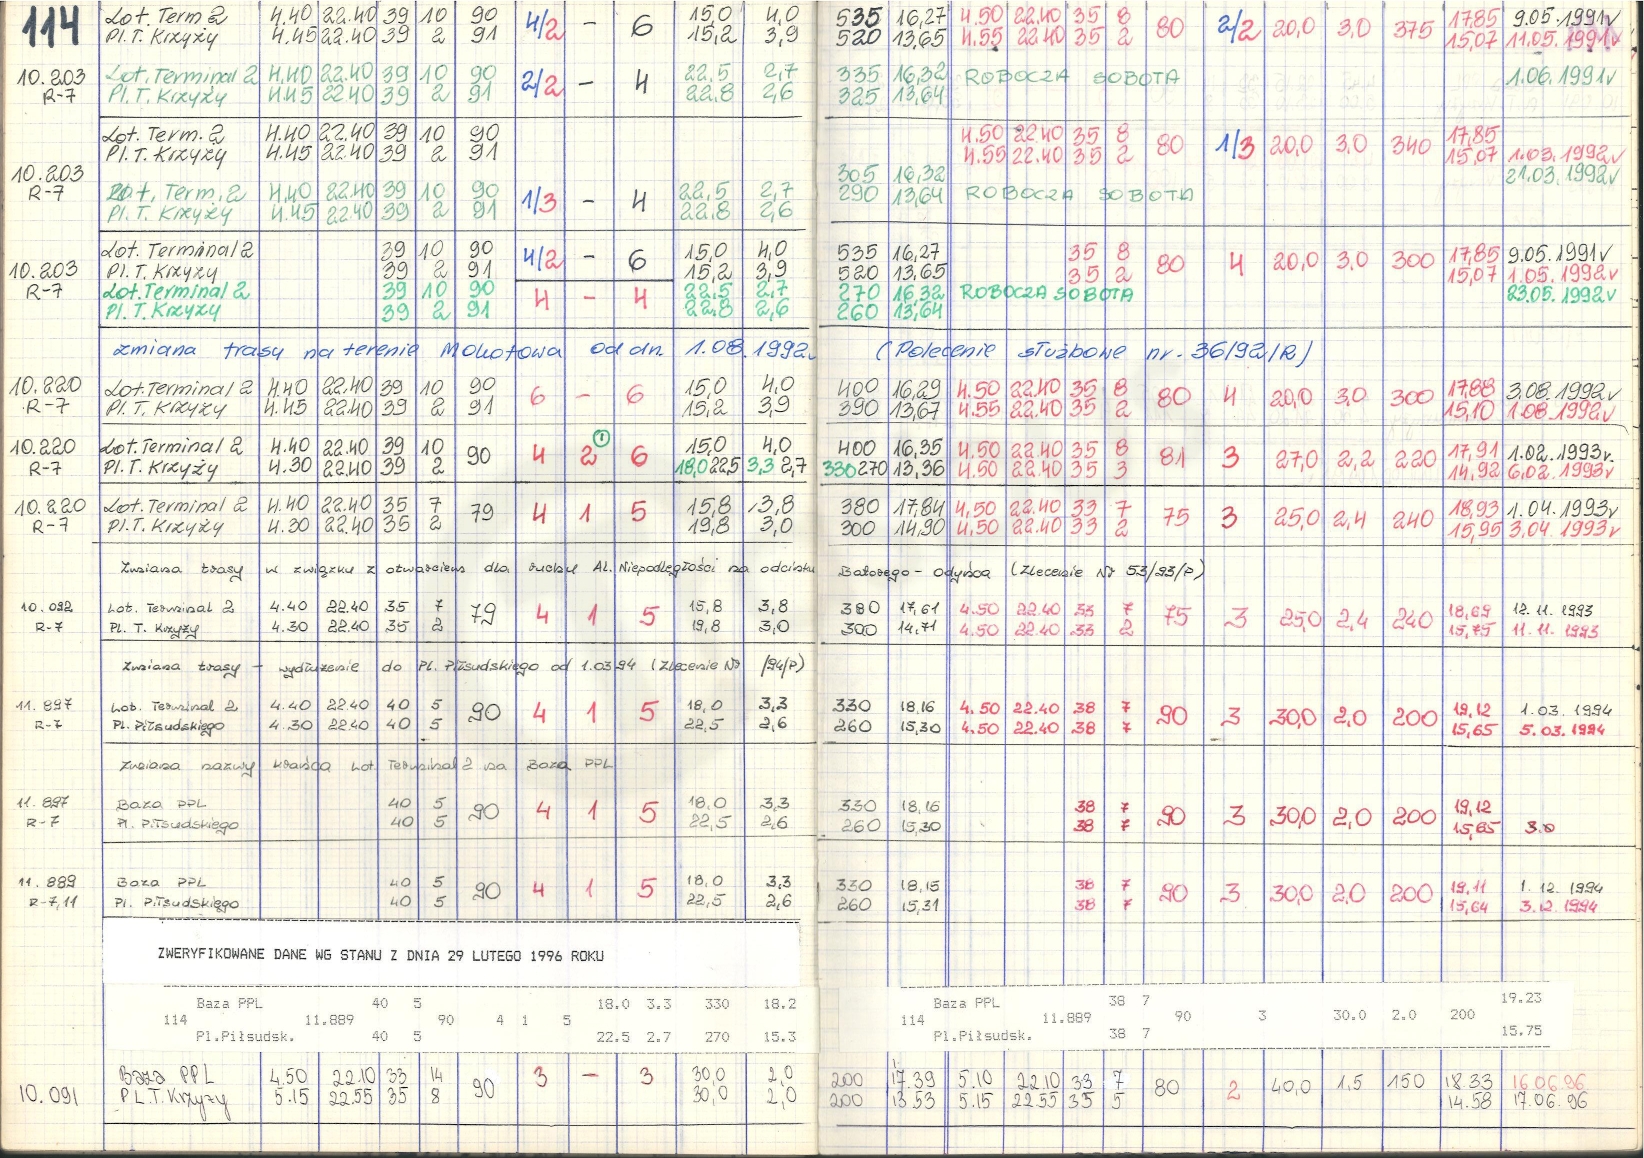 114 Lot. Term 2 4.40 22.40 39 10 90 4/2 - 6 15,0 4,0 535 16,27 4.50 22.40 35 8 80 2/2 20,0 3,0 375 17,85 9.05.1991r
Pl. T. Krzyży 4.45 22.40 39 2 91 15,2 3,9 520 13,65 4.55 22.40 35 2 15,07 11.05.1991r
10.203 Lot. Terminal 2 4.40 22.40 39 10 90 2/2 - 4 22,5 2,7 335 16,32 ROBOCZA SOBOTA 1.06.1991r
R-7 Pl. T. Krzyży 4.45 22.40 39 2 91 22,8 2,6 325 13,64
Lot. Term. 2 4.40 22.40 39 10 90 4.50 22.40 35 8 80 1/3 20,0 3,0 340 17,85
Pl. T. Krzyży 4.45 22.40 39 2 91 4.55 22.40 35 2 15,07 1.03.1992r
10.203 305 16,32 21.03.1992r
R-7 Lot. Term. 2 4.40 22.40 39 10 90 1/3 - 4 22,5 2,7 290 13,64 ROBOCZA SOBOTA
Pl. T. Krzyży 4.45 22.40 39 2 91 22,8 2,6
Lot. Terminal 2 39 10 90 4/2 - 6 15,0 4,0 535 16,27 35 8 80 4 20,0 3,0 300 17,85 9.05.1991r
10.203 Pl. T. Krzyży 39 2 91 15,2 3,9 520 13,65 35 2 15,07 1.05.1992r
R-7 Lot. Terminal 2 39 10 90 4 - 4 22,5 2,7 270 16,32 ROBOCZA SOBOTA 23.05.1992r
Pl. T. Krzyży 39 2 91 22,8 2,6 260 13,64
Zmiana trasy na terenie Mokotowa od dn. 1.08.1992r (Polecenie służbowe nr. 36/92/R)
10.220 Lot. Terminal 2 4.40 22.40 39 10 90 6 - 6 15,0 4,0 400 16,29 4.50 22.40 35 8 80 4 20,0 3,0 300 17,88 3.08.1992r
R-7 Pl. T. Krzyży 4.45 22.40 39 2 91 15,2 3,9 390 13,67 4.55 22.40 35 2 15,10 1.08.1992r
10.220 Lot. Terminal 2 4.40 22.40 39 10 90 4 2 ① 6 15,0 4,0 400 16,35 4.50 22.40 35 8 81 3 27,0 2,2 220 17,91 1.02.1993r.
R-7 Pl. T. Krzyży 4.30 22.40 39 2 18,0 22,5 3,3 2,7 330 270 13,36 4.50 22.40 35 3 14,92 6.02.1993r
10.220 Lot. Terminal 2 4.40 22.40 35 7 79 4 1 5 15,8 3,8 380 17,84 4,50 22.40 33 7 75 3 25,0 2,4 240 18,93 1.04.1993r
R-7 Pl. T. Krzyży 4.30 22.40 35 2 19,8 3,0 300 14,90 4,50 22.40 33 2 15,95 3.04.1993r
Zmiana trasy w związku z otwarciem dla ruchu Al. Niepodległości na odcinku Batorego - Odyńca (Zlecenie Nr 53/93/P)
10.092 Lot. Terminal 2 4.40 22.40 35 7 79 4 1 5 15,8 3,8 380 17,61 4.50 22.40 33 7 75 3 25,0 2,4 240 18,69 12.11.1993
R-7 Pl. T. Krzyży 4.30 22.40 35 2 19,8 3,0 300 14,71 4.50 22.40 33 2 15,75 11.11.1993
Zmiana trasy - wydłużenie do Pl. Piłsudskiego od 1.03.94 (Zlecenie Nr /94/P)
11.897 Lot. Terminal 2 4.40 22.40 40 5 90 4 1 5 18,0 3,3 330 18,16 4.50 22.40 38 7 90 3 30,0 2,0 200 19,12 1.03.1994
R-7 Pl. Piłsudskiego 4.30 22.40 40 5 22,5 2,6 260 15,30 4.50 22.40 38 7 15,65 5.03.1994
Zmiana nazwy krańca Lot. Terminal 2 na Baza PPL
11.897 Baza PPL 40 5 90 4 1 5 18,0 3,3 330 18,16 38 7 90 3 30,0 2,0 200 19,12
R-7 Pl. Piłsudskiego 40 5 22,5 2,6 260 15,30 38 7 15,65 3.0
11.889 Baza PPL 40 5 90 4 1 5 18,0 3,3 330 18,15 38 7 90 3 30,0 2,0 200 19,11 1.12.1994
R-7,11 Pl. Piłsudskiego 40 5 22,5 2,6 260 15,31 38 7 15,64 3.12.1994
ZWERYFIKOWANE DANE WG STANU Z DNIA 29 LUTEGO 1996 ROKU
Baza PPL 40 5 18.0 3.3 330 18.2 Baza PPL 38 7 19.23
114 11.889 90 4 1 5 114 11.889 90 3 30.0 2.0 200
Pl.Piłsudsk. 40 5 22.5 2.7 270 15.3 Pl.Piłsudsk. 38 7 15.75
10.091 Baza PPL 4.50 22.10 33 14 90 3 - 3 30,0 2,0 200 17.39 5.10 22.10 33 7 80 2 40,0 1,5 150 18.33 16.06.96
PL.T.Krzyży 5.15 22.55 35 8 30,0 2,0 200 13.53 5.15 22.55 35 5 14.58 17.06.96